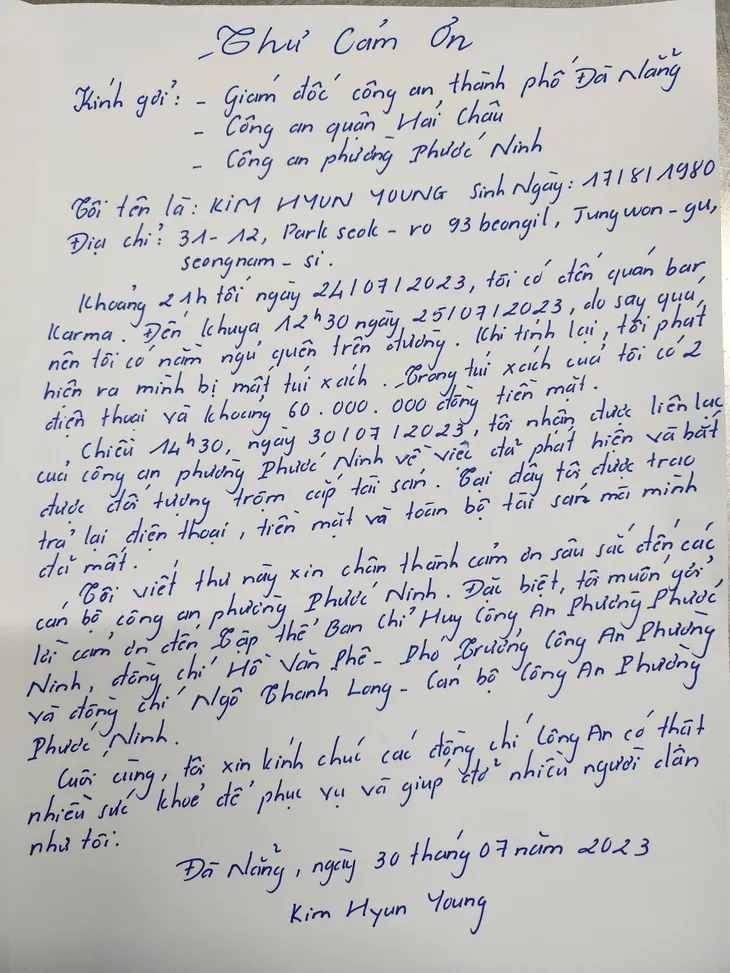 Thư Cảm Ơn
Kính gởi: - Giám đốc công an thành phố Đà Nẵng
- Công an quận Hải Châu
- Công an phường Phước Ninh
Tôi tên là: KIM HYUN YOUNG sinh Ngày: 17/8/1980
Địa chỉ: 31-12, Park seok - ro 93 beongil, Jungwon - gu,
seongnam - si.
Khoảng 21h tối ngày 24/07/2023, tôi có đến quán bar
Karma. Đến khuya 12h30 ngày 25/07/2023, do say quá
nên tôi có nằm ngủ quên trên đường. Khi tỉnh lại, tôi phát
hiện ra mình bị mất túi xách. Trong túi xách của tôi có 2
điện thoại và khoảng 60.000.000 đồng tiền mặt.
Chiều 14h30, ngày 30/07/2023, tôi nhận được liên lạc
của công an phường Phước Ninh về việc đã phát hiện và bắt
được đối tượng trộm cắp tài sản. Tại đây tôi được trao
trả lại điện thoại, tiền mặt và toàn bộ tài sản mà mình
đã mất.
Tôi viết thư này xin chân thành cảm ơn sâu sắc đến các
cán bộ công an phường Phước Ninh. Đặc biệt, tôi muốn gởi
lời cảm ơn đến Tập thể Ban Chỉ Huy Công An Phường Phước
Ninh, đồng chí Hồ Văn Phê - Phó Trưởng Công An Phường
và đồng chí Ngô Thanh Long - Cán bộ Công An Phường
Phước Ninh.
Cuối cùng, tôi xin kính chúc các đồng chí Công An có thật
nhiều sức khoẻ để phục vụ và giúp đỡ nhiều người dân
như tôi.
Đà Nẵng, ngày 30 tháng 07 năm 2023
Kim Hyun Young